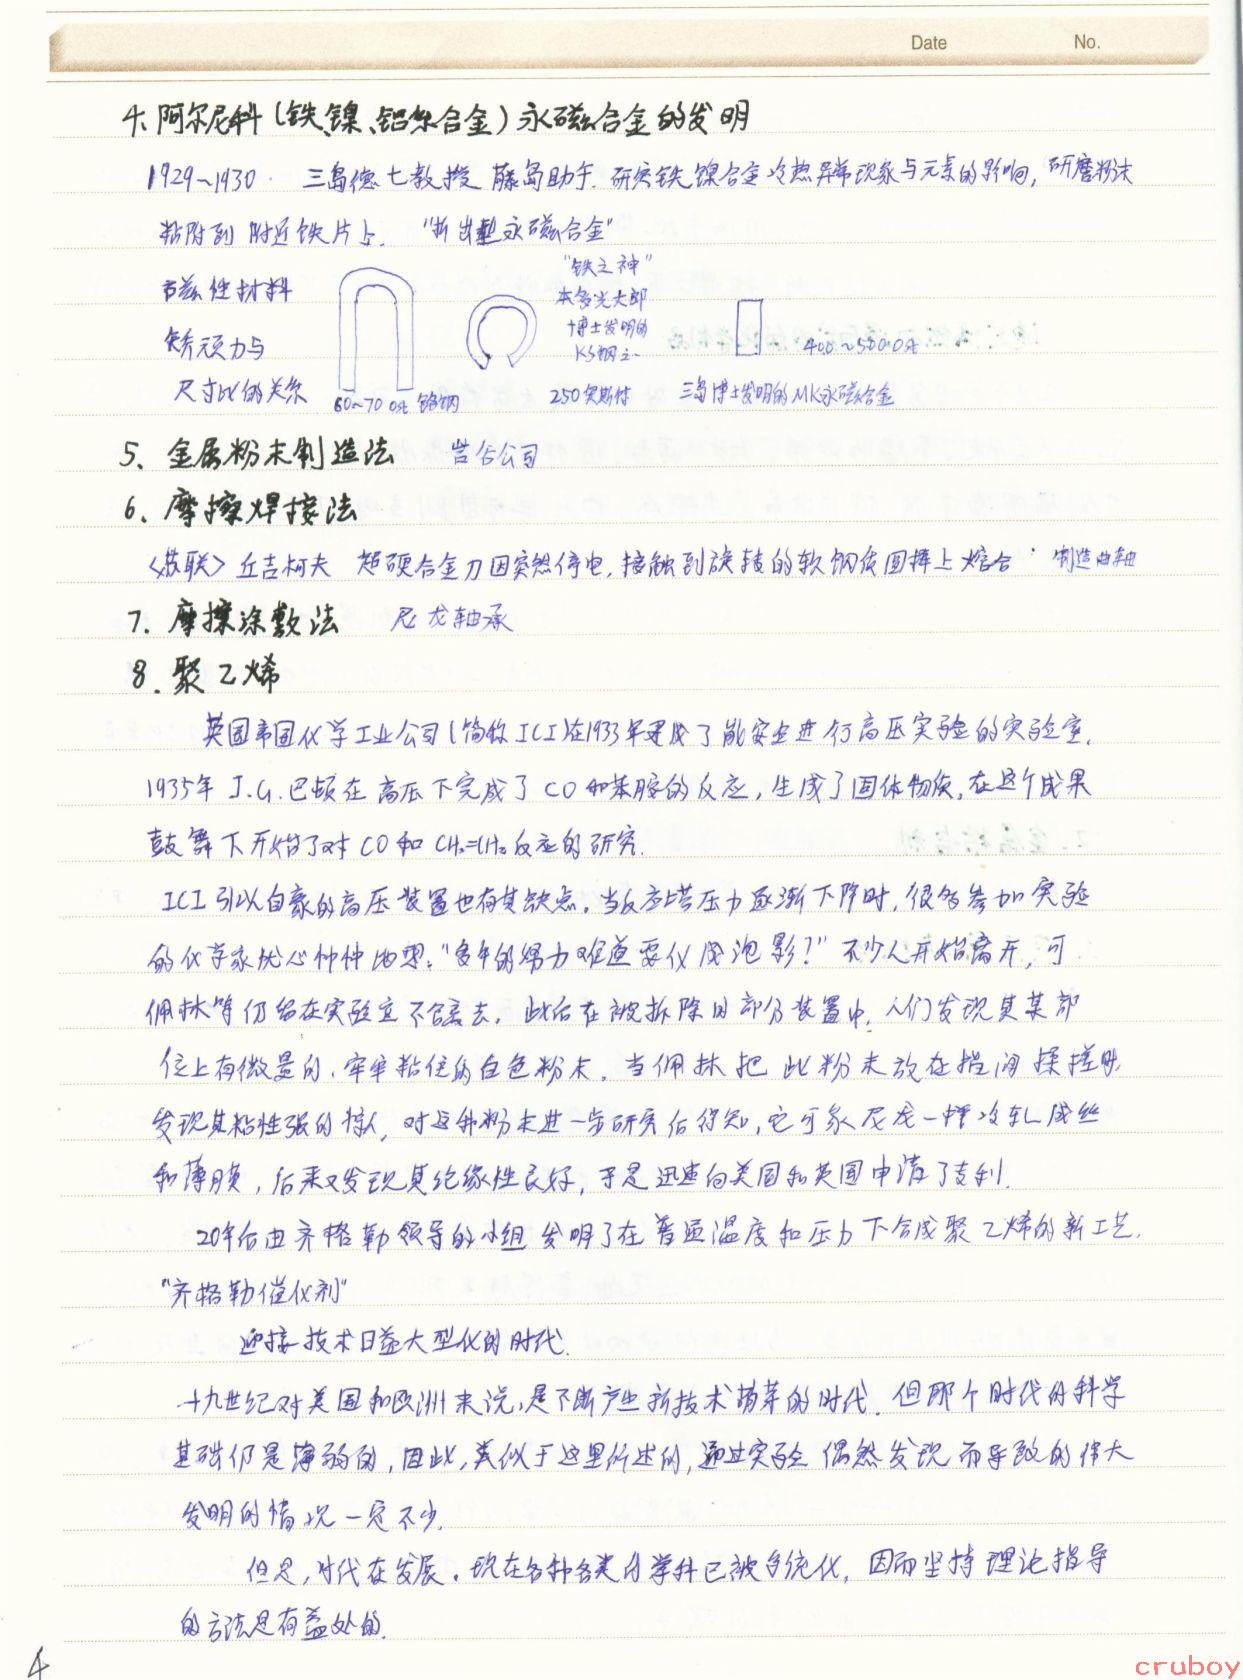 Date No.
4. 阿尔尼科(铁、镍、铝系合金)永磁合金的发明
1929~1930. 三岛德七教授 藤岛助手. 研究铁镍合金冷热异常现象与元素的影响, 研磨粉末
粘附到附近铁片上. "析出型永磁合金"
"铁之神"
本多光太郎
博士发明的
KS钢之一
磁性材料
矫顽力与
尺寸比的关系
60~70 Oe 铬钢
250奥斯特
400~500 Oe
三岛博士发明的MK永磁合金
5. 金属粉末制造法 岩谷公司
6. 摩擦焊接法
<苏联> 丘吉柯夫 超硬合金刀因突然停电, 接触到旋转的软钢质圆棒上熔合 制造曲轴
7. 摩擦涂敷法 尼龙轴承
8. 聚乙烯
英国帝国化学工业公司(简称ICI)在1933年建成了能安全进行高压实验的实验室.
1935年 J.G.巴顿在高压下完成了CO和苯胺的反应, 生成了固体物质, 在这个成果
鼓舞下开始了对CO和CH₂=CH₂反应的研究.
ICI引以自豪的高压装置也有其缺点. 当反应塔压力逐渐下降时, 很多参加实验
的化学家忧心忡忡地想: "多年的努力难道要化成泡影?" 不少人开始离开, 可
佩林等仍留在实验室不离去. 此后在被拆除的部分装置中, 人们发现其某部
位上有微量的、牢牢粘住的白色粉末. 当佩林把此粉末放在指间揉搓时,
发现其粘性强的惊人, 对这种粉末进一步研究后得知, 它可象尼龙一样改轧成丝
和薄膜, 后来又发现其绝缘性良好, 于是迅速向美国和英国申请了专利.
20年后由齐格勒领导的小组发明了在普通温度和压力下合成聚乙烯的新工艺.
"齐格勒催化剂"
迎接技术日益大型化的时代.
十九世纪对美国和欧洲来说, 是不断产生新技术萌芽的时代. 但那个时代的科学
基础仍是薄弱的, 因此, 类似于这里所述的, 通过实验偶然发现而导致的伟大
发明的情况一定不少.
但是, 时代在发展. 现在各种各类的学科已被系统化, 因而坚持理论指导
的方法是有益处的.
4
cruboy